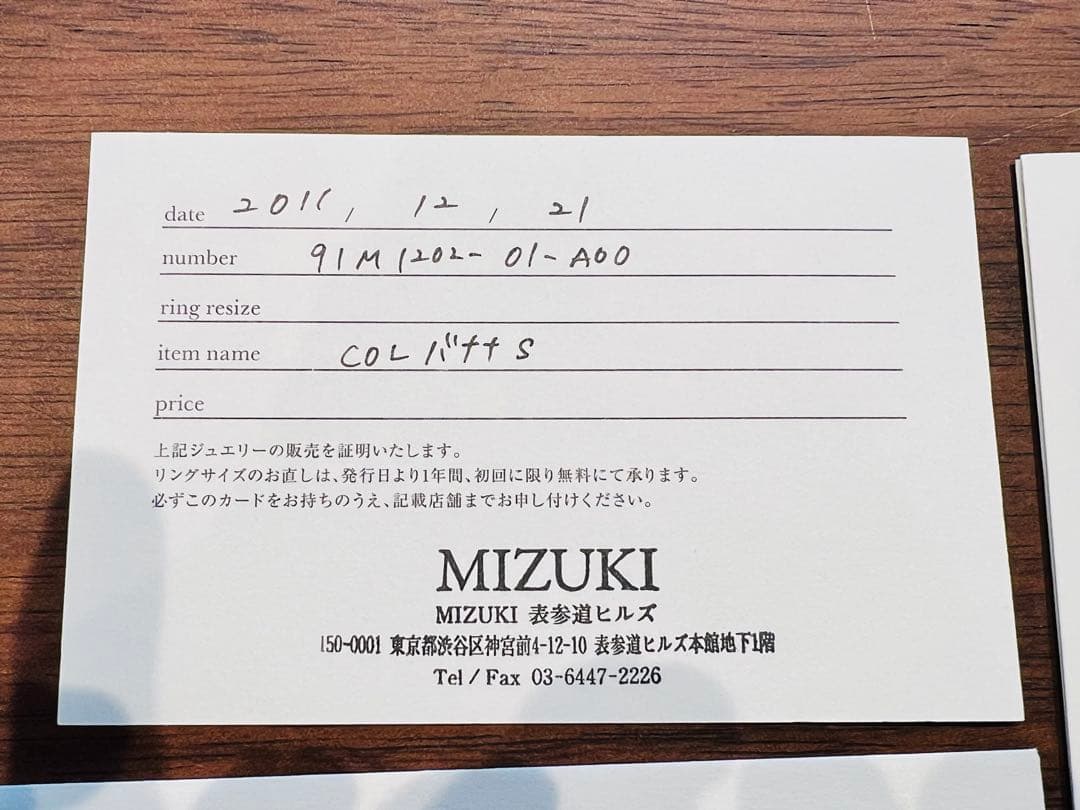 date 2011, 12, 21
number 91M1202-01-A00
ring resize
item name COL バナナ S
price
上記ジュエリーの販売を証明いたします。
リングサイズのお直しは、発行日より1年間、初回に限り無料にて承ります。
必ずこのカードをお持ちのうえ、記載店舗までお申し付けください。
MIZUKI
MIZUKI 表参道ヒルズ
150-0001 東京都渋谷区神宮前4-12-10 表参道ヒルズ本館地下1階
Tel / Fax 03-6447-2226